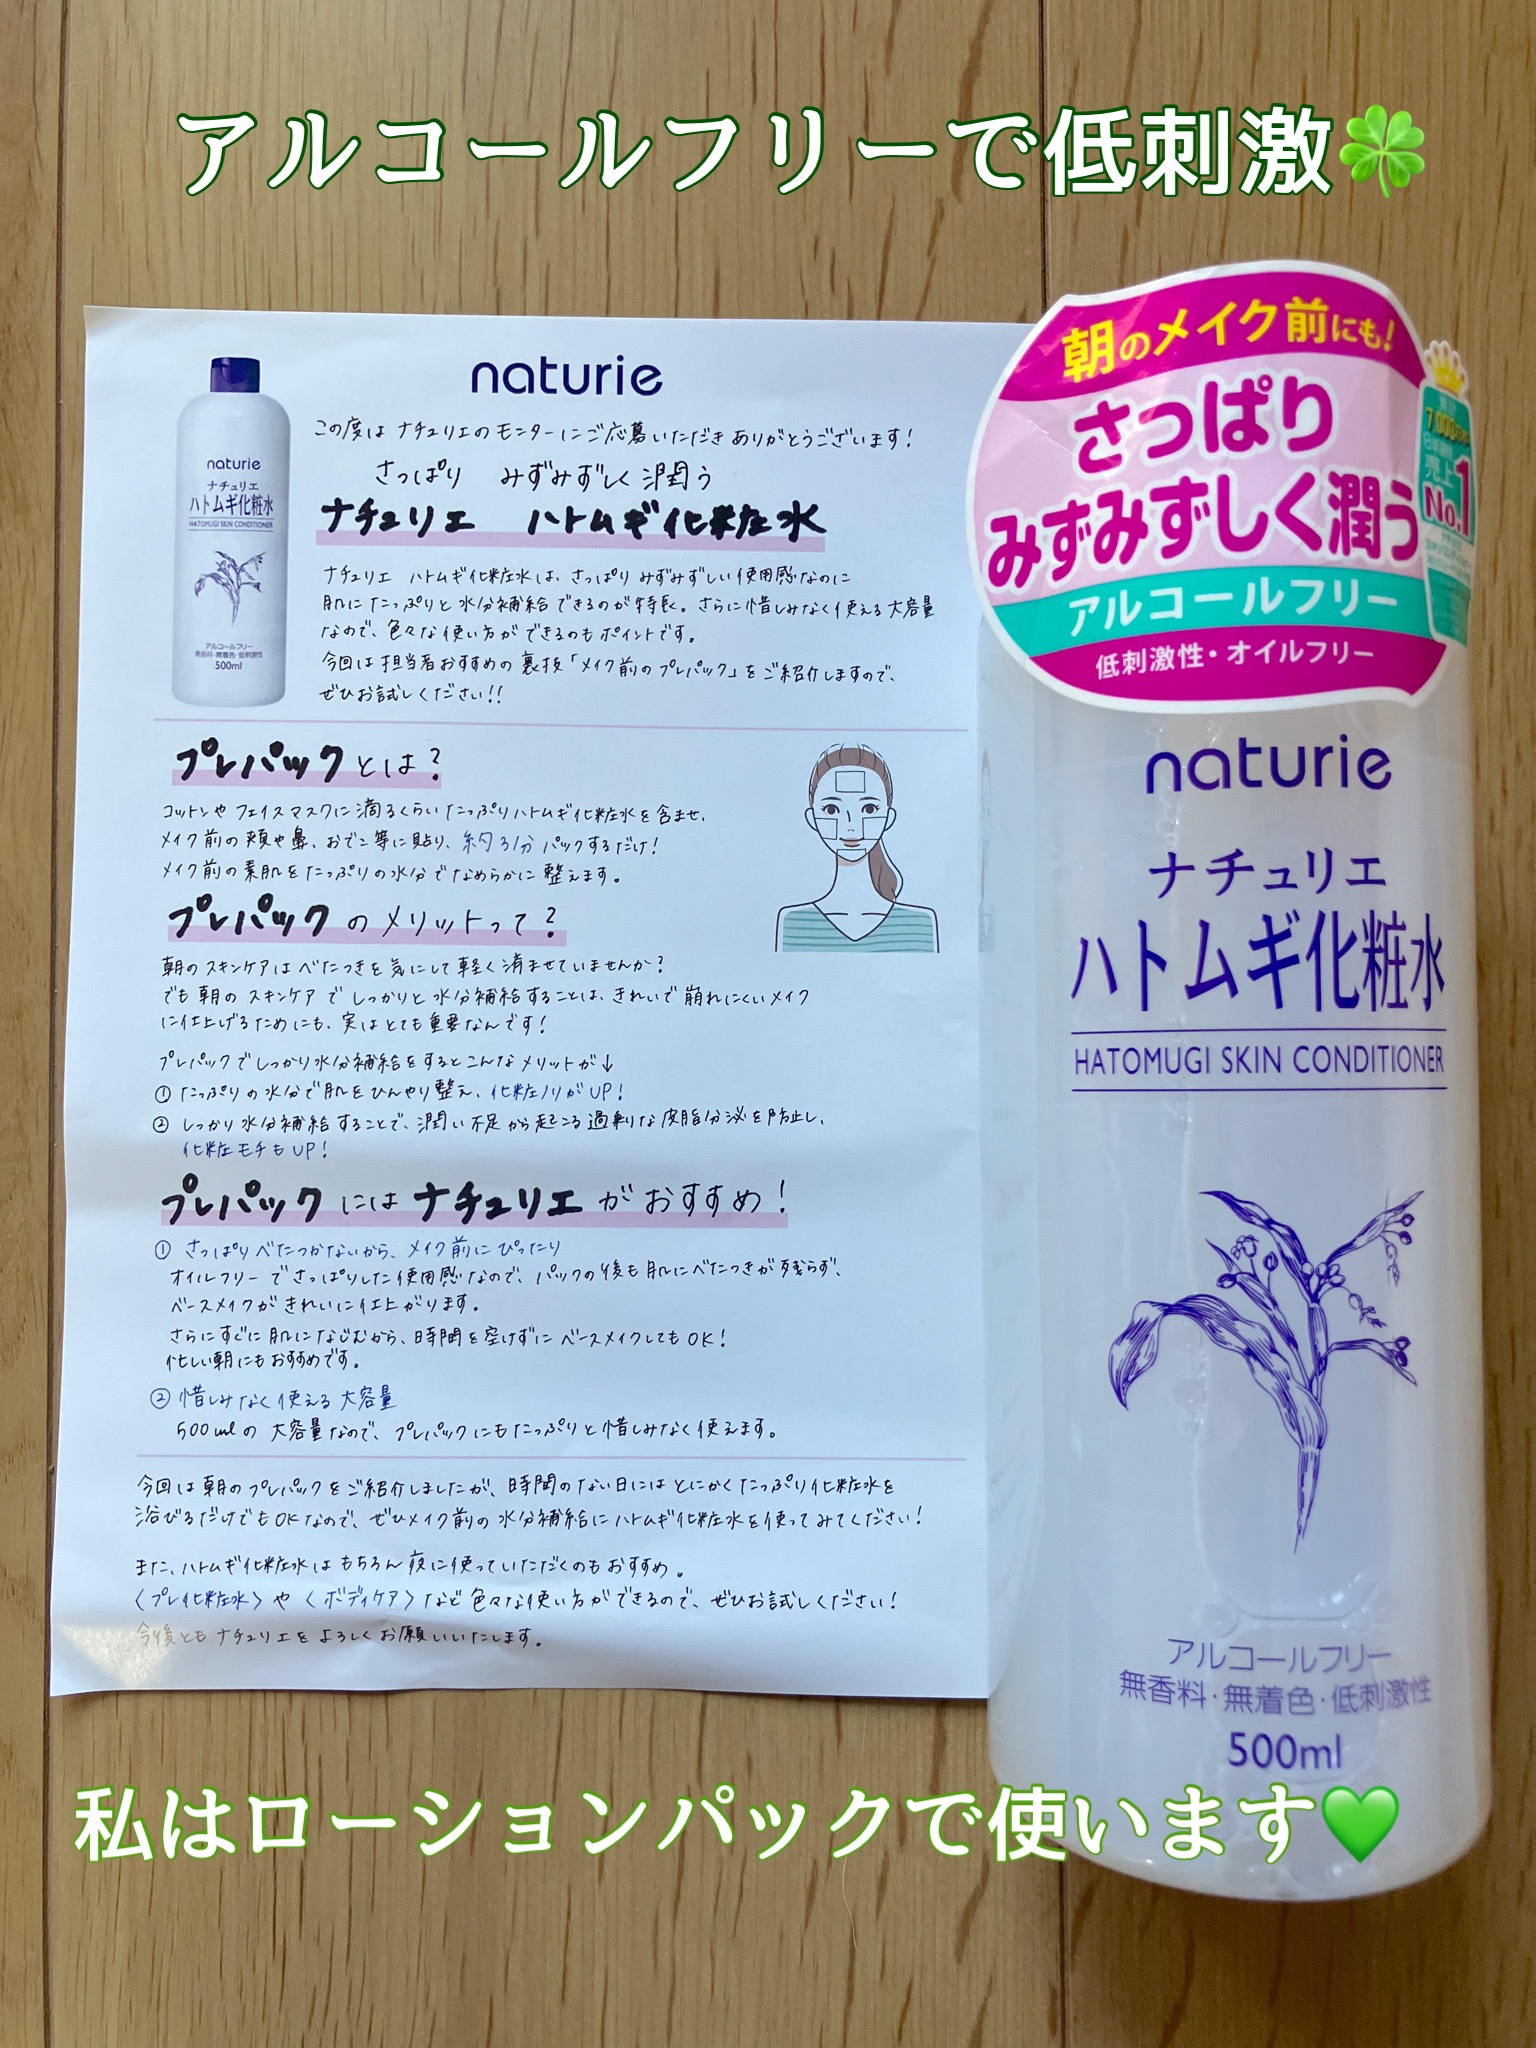 アルコールフリーで低刺激🍀
naturie
この度は ナチュリエのモニターにご応募いただき ありがとうございます!
さっぱり みずみずしく潤う
ナチュリエ ハトムギ化粧水
ナチュリエ ハトムギ化粧水は、さっぱり みずみずしい使用感なのに
肌にたっぷりと水分補給できるのが特長。さらに惜しみなく使える大容量
なので、色々な使い方ができるのもポイントです。
今回は担当者おすすめの裏技「メイク前のプレパック」をご紹介しますので、
ぜひお試しください!!
naturie
ナチュリエ
ハトムギ化粧水
HATOMUGI SKIN CONDITIONER
アルコールフリー
無香料・無着色・低刺激性
500ml
プレパックとは?
コットンやフェイスマスクに滴るくらいたっぷりハトムギ化粧水を含ませ、
メイク前の頬や鼻、おでこ等に貼り、約3分パックするだけ!
メイク前の素肌をたっぷりの水分でなめらかに整えます。
プレパックのメリットって?
朝のスキンケアはべたつきを気にして軽く済ませていませんか?
でも朝のスキンケアでしっかりと水分補給することは、きれいで崩れにくいメイク
に仕上げるためにも、実はとても重要なんです!
プレパックでしっかり水分補給をするとこんなメリットが↓
① たっぷりの水分で肌をひんやり整え、化粧ノリがUP!
② しっかり水分補給することで、潤い不足から起こる過剰な皮脂分泌を防止し、
化粧モチもUP!
プレパックにはナチュリエがおすすめ!
① さっぱりべたつかないから、メイク前にぴったり
オイルフリーでさっぱりした使用感なので、パックの後も肌にべたつきが残らず、
ベースメイクがきれいに仕上がります。
さらにすぐに肌になじむから、時間を空けずにベースメイクしてもOK!
忙しい朝にもおすすめです。
② 惜しみなく使える大容量
500mlの大容量なので、プレパックにもたっぷりと惜しみなく使えます。
今回は朝のプレパックをご紹介しましたが、時間のない日にはとにかくたっぷり化粧水を
浴びるだけでもOKなので、ぜひメイク前の水分補給にハトムギ化粧水を使ってみてください!
また、ハトムギ化粧水はもちろん夜に使っていただくのもおすすめ。
〈プレ化粧水〉や〈ボディケア〉など色々な使い方ができるので、ぜひお試しください!
今後ともナチュリエをよろしくお願いいたします。
朝のメイク前にも!
さっぱり
みずみずしく潤う
アルコールフリー
低刺激性・オイルフリー
売上
No.1
naturie
ナチュリエ
ハトムギ化粧水
HATOMUGI SKIN CONDITIONER
アルコールフリー
無香料・無着色・低刺激性
500ml
私はローションパックで使います💚